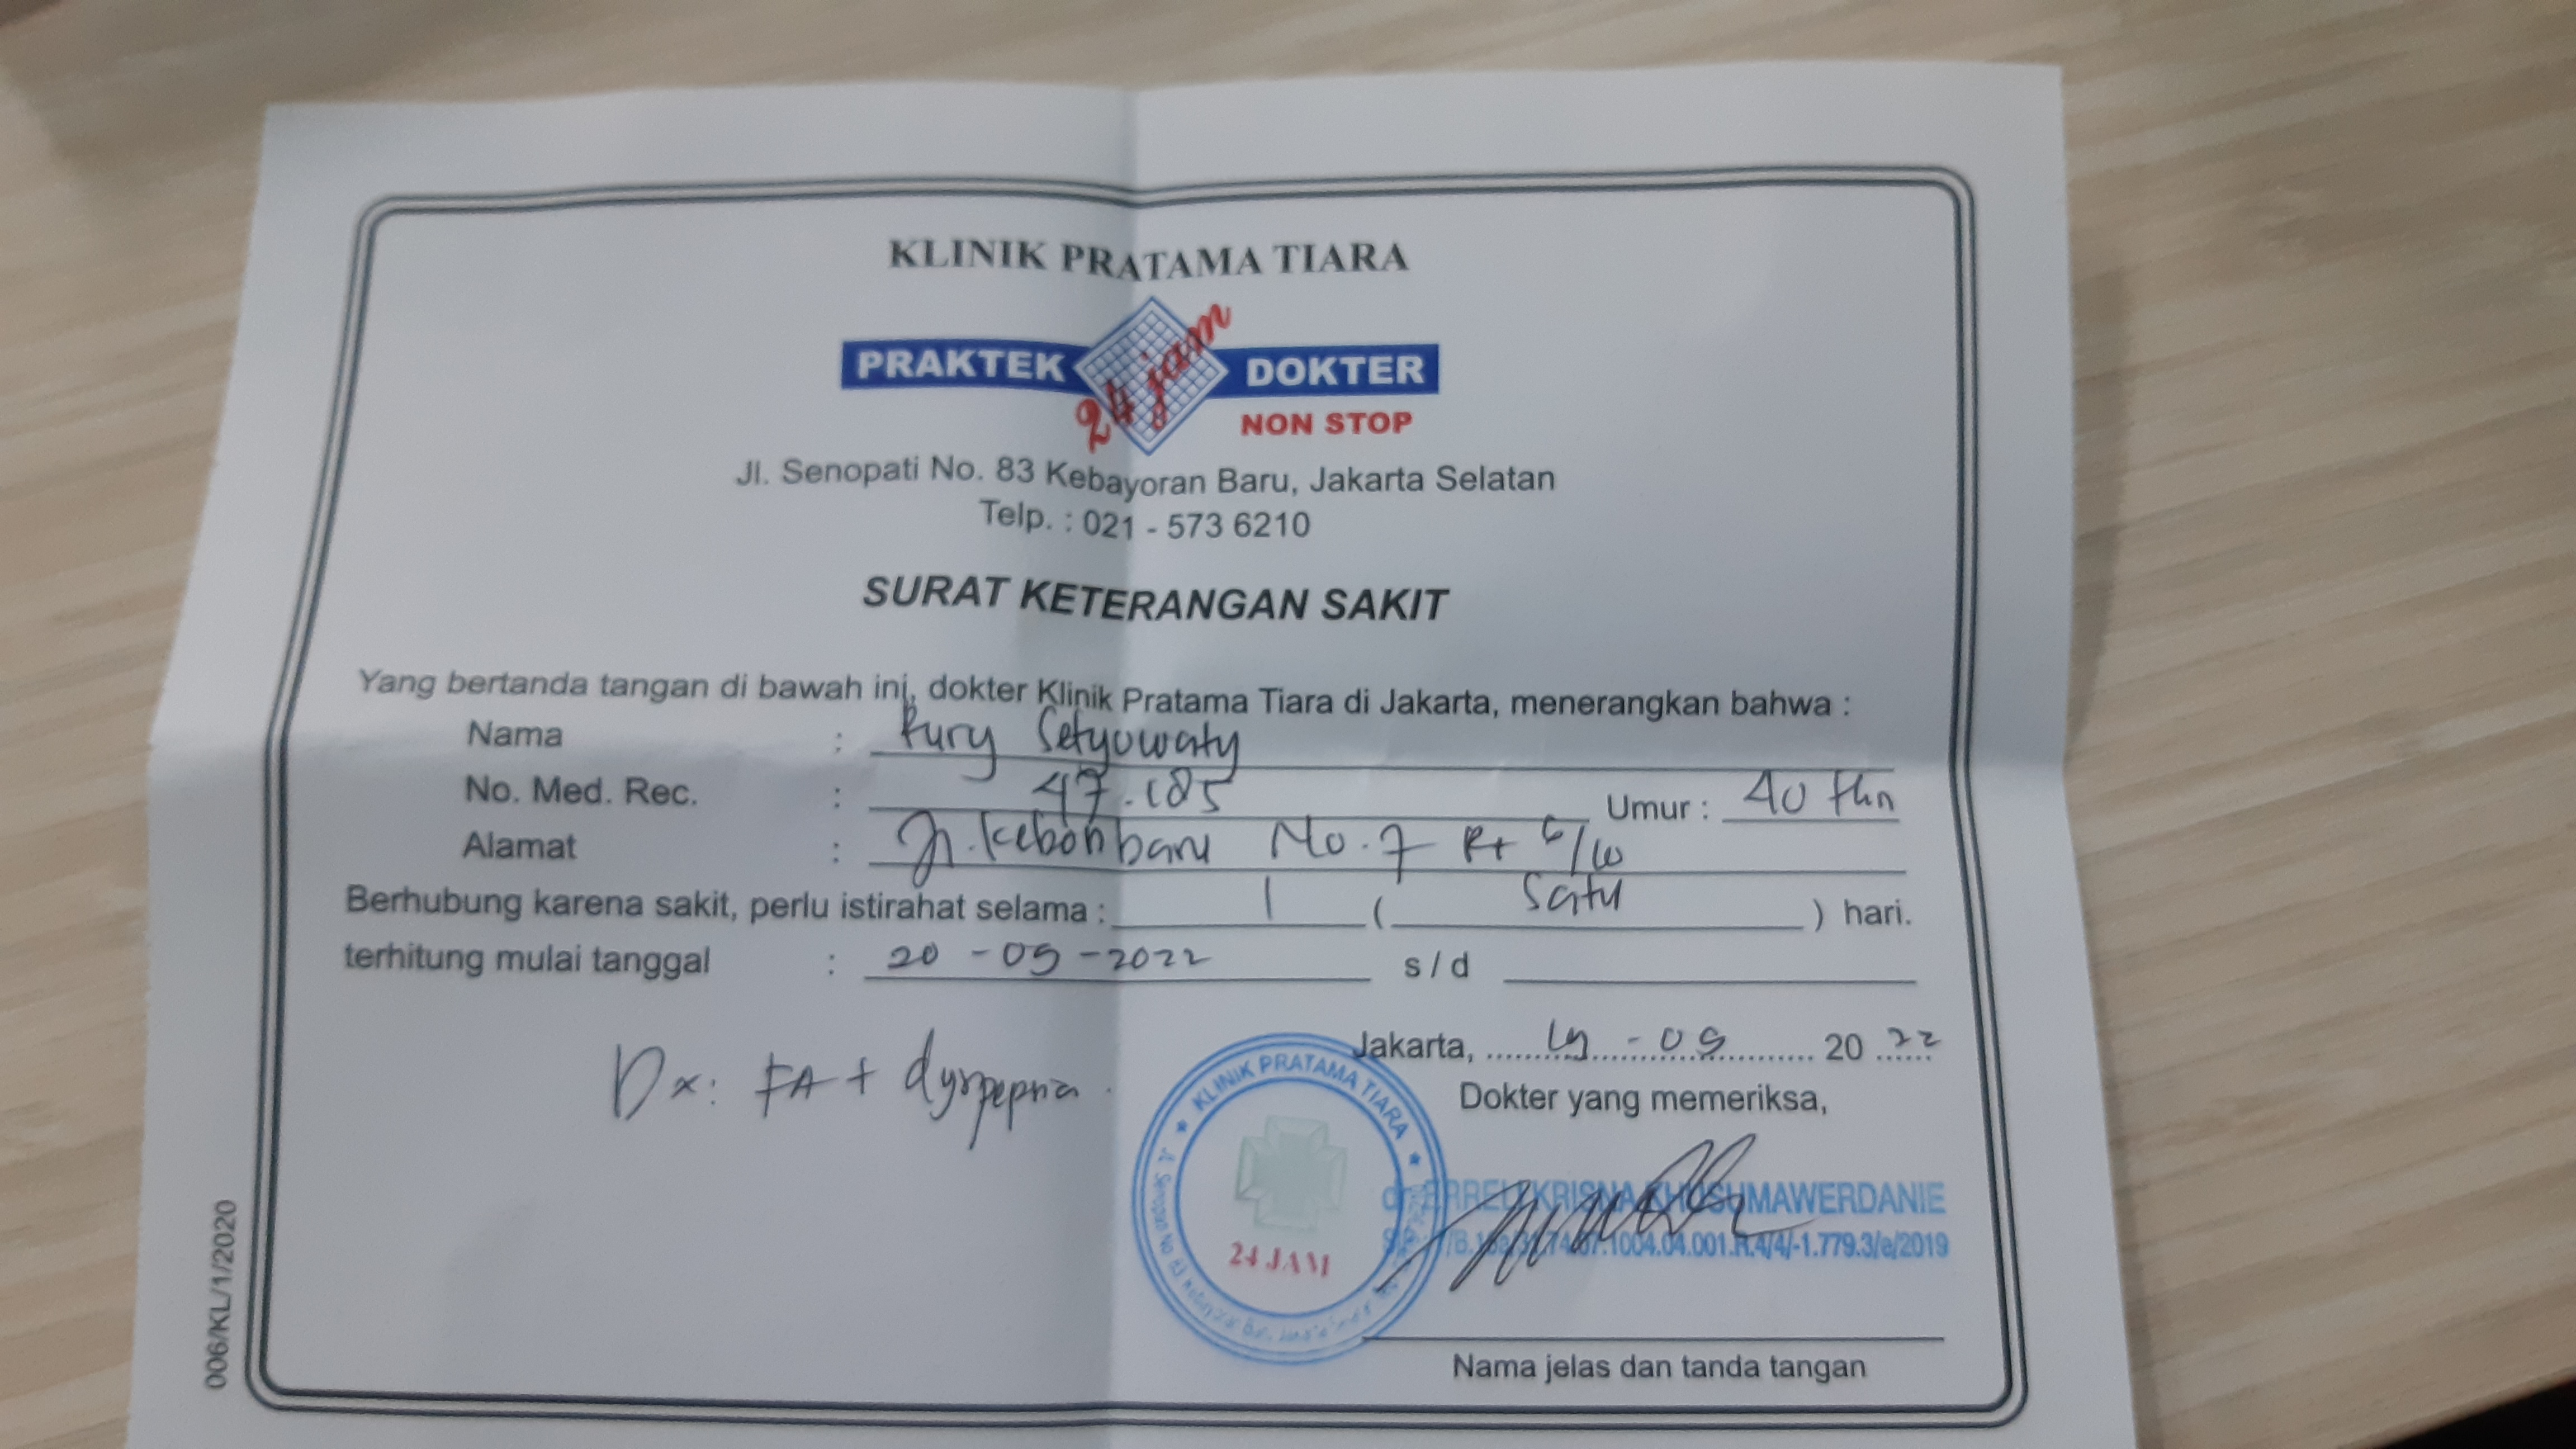 KLINIK PRATAMA TIARA
PRAKTEK 24 jam DOKTER
NON STOP
Jl. Senopati No. 83 Kebayoran Baru, Jakarta Selatan
Telp. : 021 - 573 6210
SURAT KETERANGAN SAKIT
Yang bertanda tangan di bawah ini, dokter Klinik Pratama Tiara di Jakarta, menerangkan bahwa :
Nama : Rury Setyowaty
No. Med. Rec. : 47.185 Umur : 40 thn
Alamat : Jl. Kebon baru No. 7 Rt 6/10
Berhubung karena sakit, perlu istirahat selama : 1 ( Satu ) hari.
terhitung mulai tanggal : 20 - 05 - 2022 s / d
Jakarta, 19 - 05 20 22
Dx: FA + dyspepsia
Dokter yang memeriksa,
KLINIK PRATAMA TIARA
24 JAM
KRISNA KHUSUMAWERDANIE
1004.04.001.R.4/4/-1.779.3/e/2019
Nama jelas dan tanda tangan
006/KL/1/2020